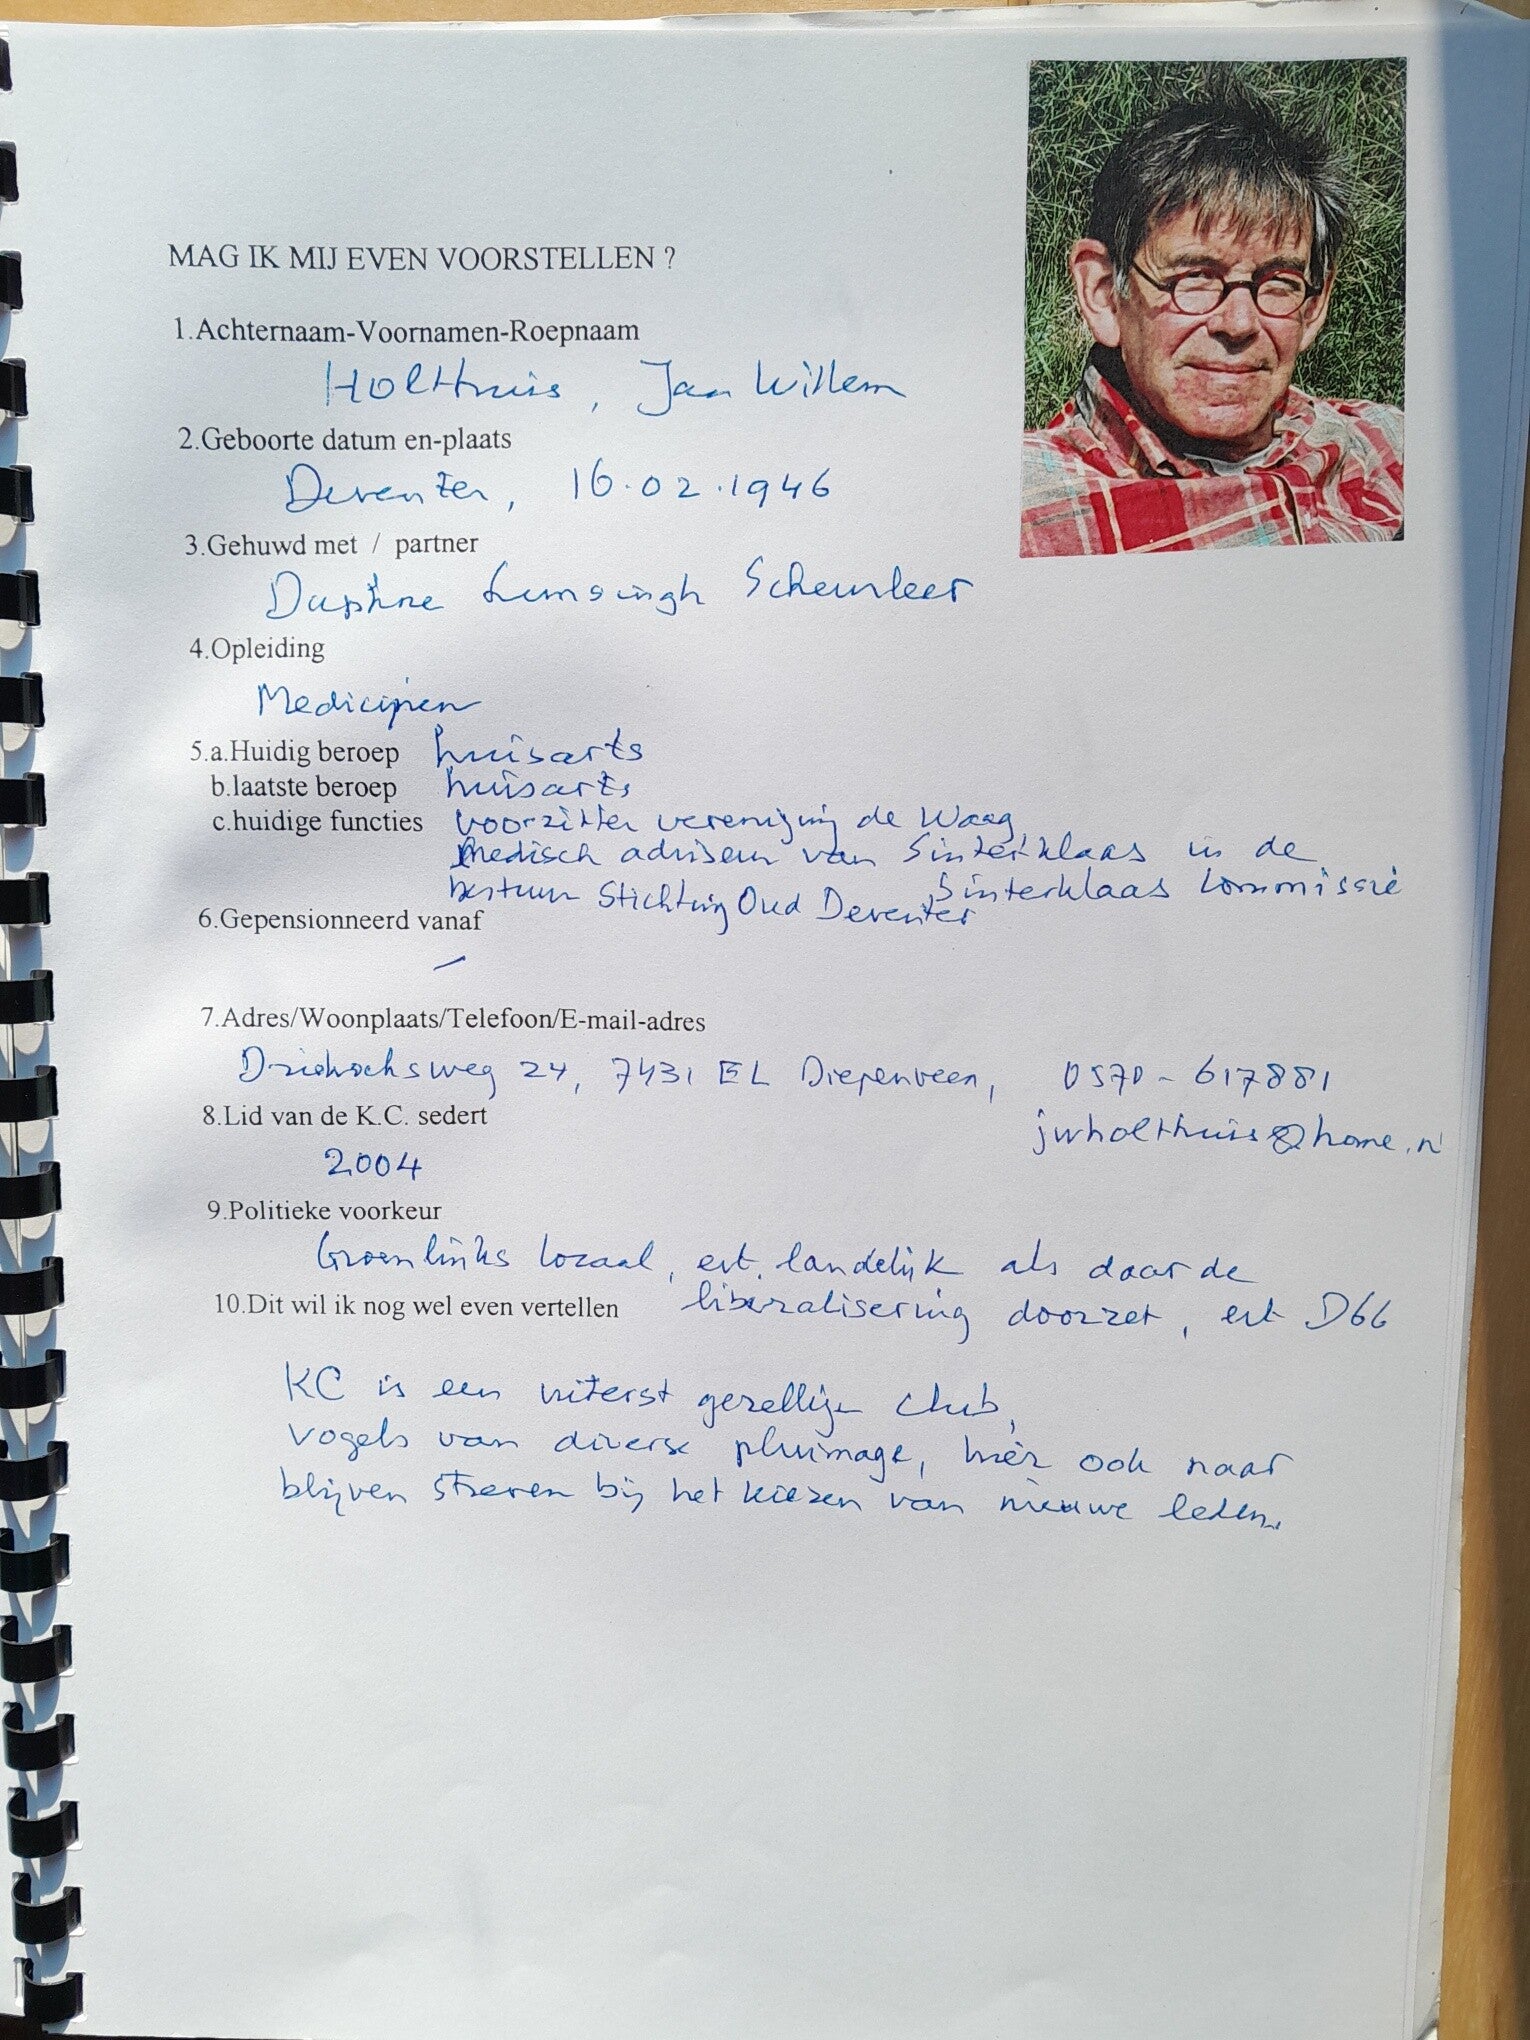 MAG IK MIJ EVEN VOORSTELLEN ?
1.Achternaam-Voornamen-Roepnaam
Holthuis, Jan Willem
2.Geboorte datum en-plaats
Deventer, 16.02.1946
3.Gehuwd met / partner
Daphne Lunsingh Scheurleer
4.Opleiding
Medicijnen
5.a.Huidig beroep huisarts
b.laatste beroep huisarts
c.huidige functies voorzitter vereniging de Waag
medisch adviseur van Sinterklaas in de
Sinterklaas Commissie
bestuur Stichting Oud Deventer
6.Gepensionneerd vanaf
–
7.Adres/Woonplaats/Telefoon/E-mail-adres
24, 7431 EL Diepenveen, 0570 - 617881
8.Lid van de K.C. sedert
jwholthuis@home.nl
2004
9.Politieke voorkeur
Groenlinks locaal, evt. landelijk als daar de
10.Dit wil ik nog wel even vertellen
liberalisering doorzet, evt D66
KC is een uiterst gezellige club,
vogels van diverse pluimage, hier ook naar
blijven streven bij het kiezen van nieuwe leden.